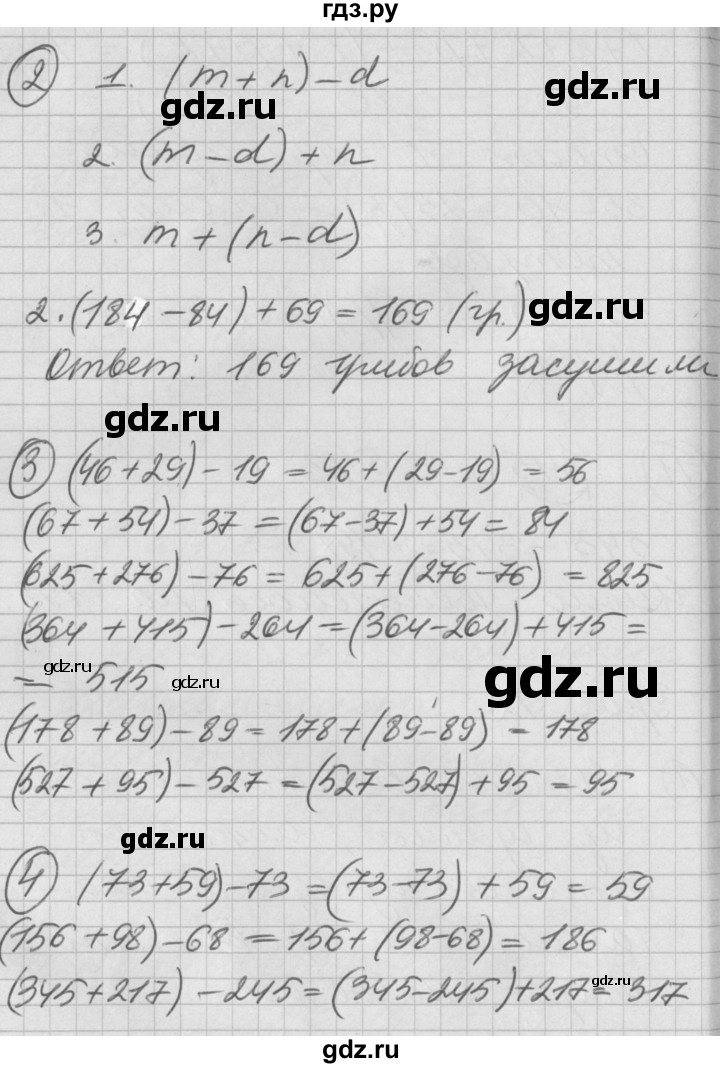 гдз.ру
2 1. (m + n) - d
gdz.ru gdz.ru
2. (m - d) + n
3. m + (n - d)
2. (184 - 84) + 69 = 169 (гр.)
gdz.ru gdz.ru
Ответ: 169 грибов засушили
gdz.ru
3 (46 + 29) - 19 = 46 + (29 - 19) = 56
(67 + 54) - 37 = (67 - 37) + 54 = 84
(625 + 276) - 76 = 625 + (276 - 76) = 825
(364 + 415) - 264 = (364 - 264) + 415 =
= 515
gdz.ru gdz.ru gdz.ru
(178 + 89) - 89 = 178 + (89 - 89) = 178
(527 + 95) - 527 = (527 - 527) + 95 = 95
gdz.ru
4 (73 + 59) - 73 = (73 - 73) + 59 = 59
(156 + 98) - 68 = 156 + (98 - 68) = 186
gdz.ru
(345 + 217) - 245 = (345 - 245) + 217 = 317
gdz.ru